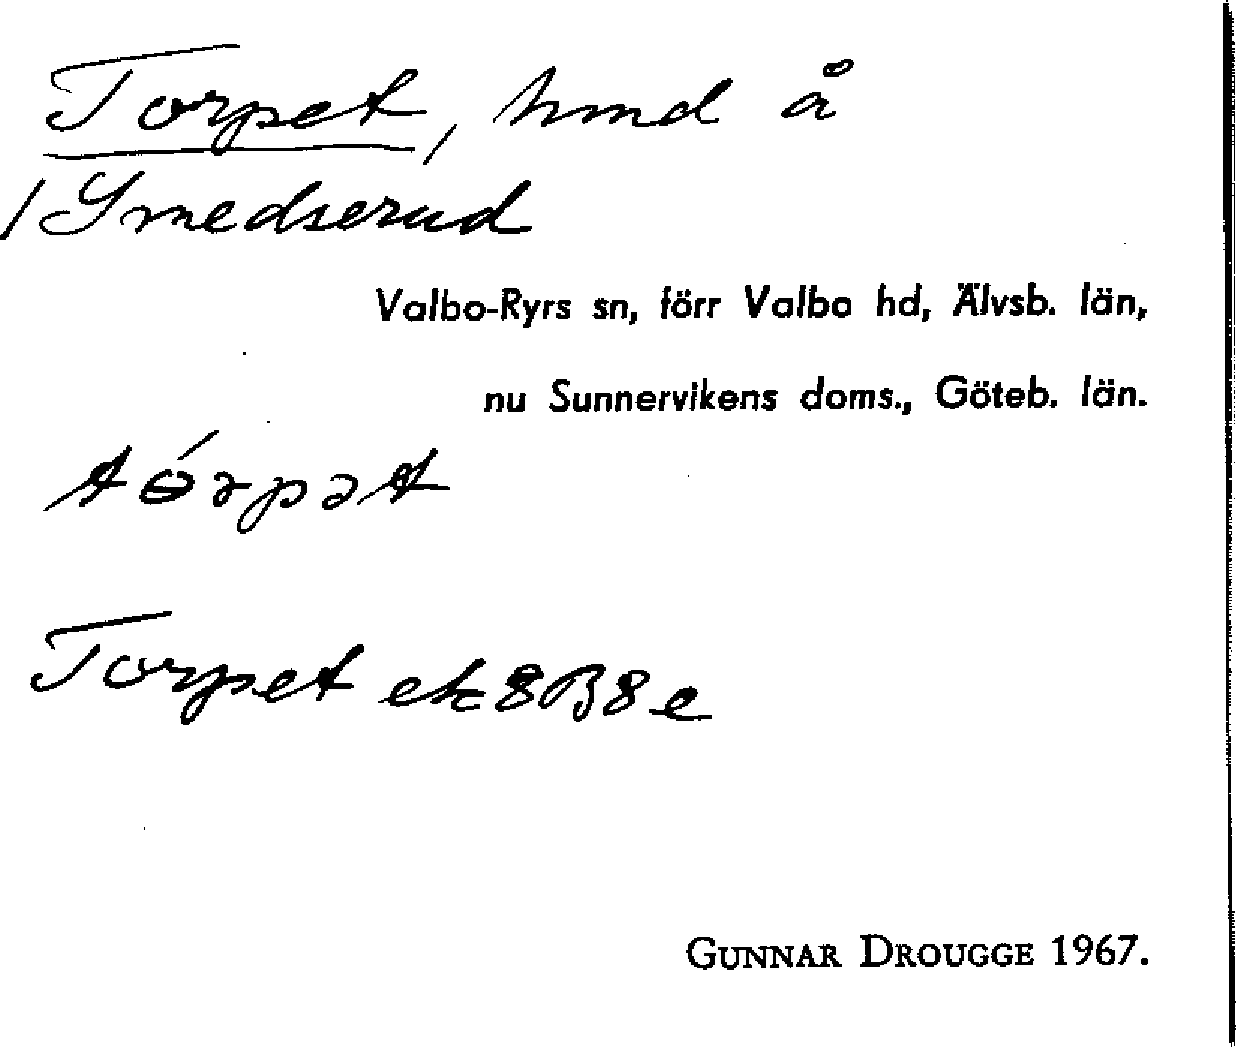 Torpet, hmd å
/Ymedserud
Valbo-Ryrs sn, förr Valbo hd, Älvsb. län,
nu Sunnervikens doms., Göteb. län.
tɵ́rpət
Torpet ek 8B8e
GUNNAR DROUGGE 1967.